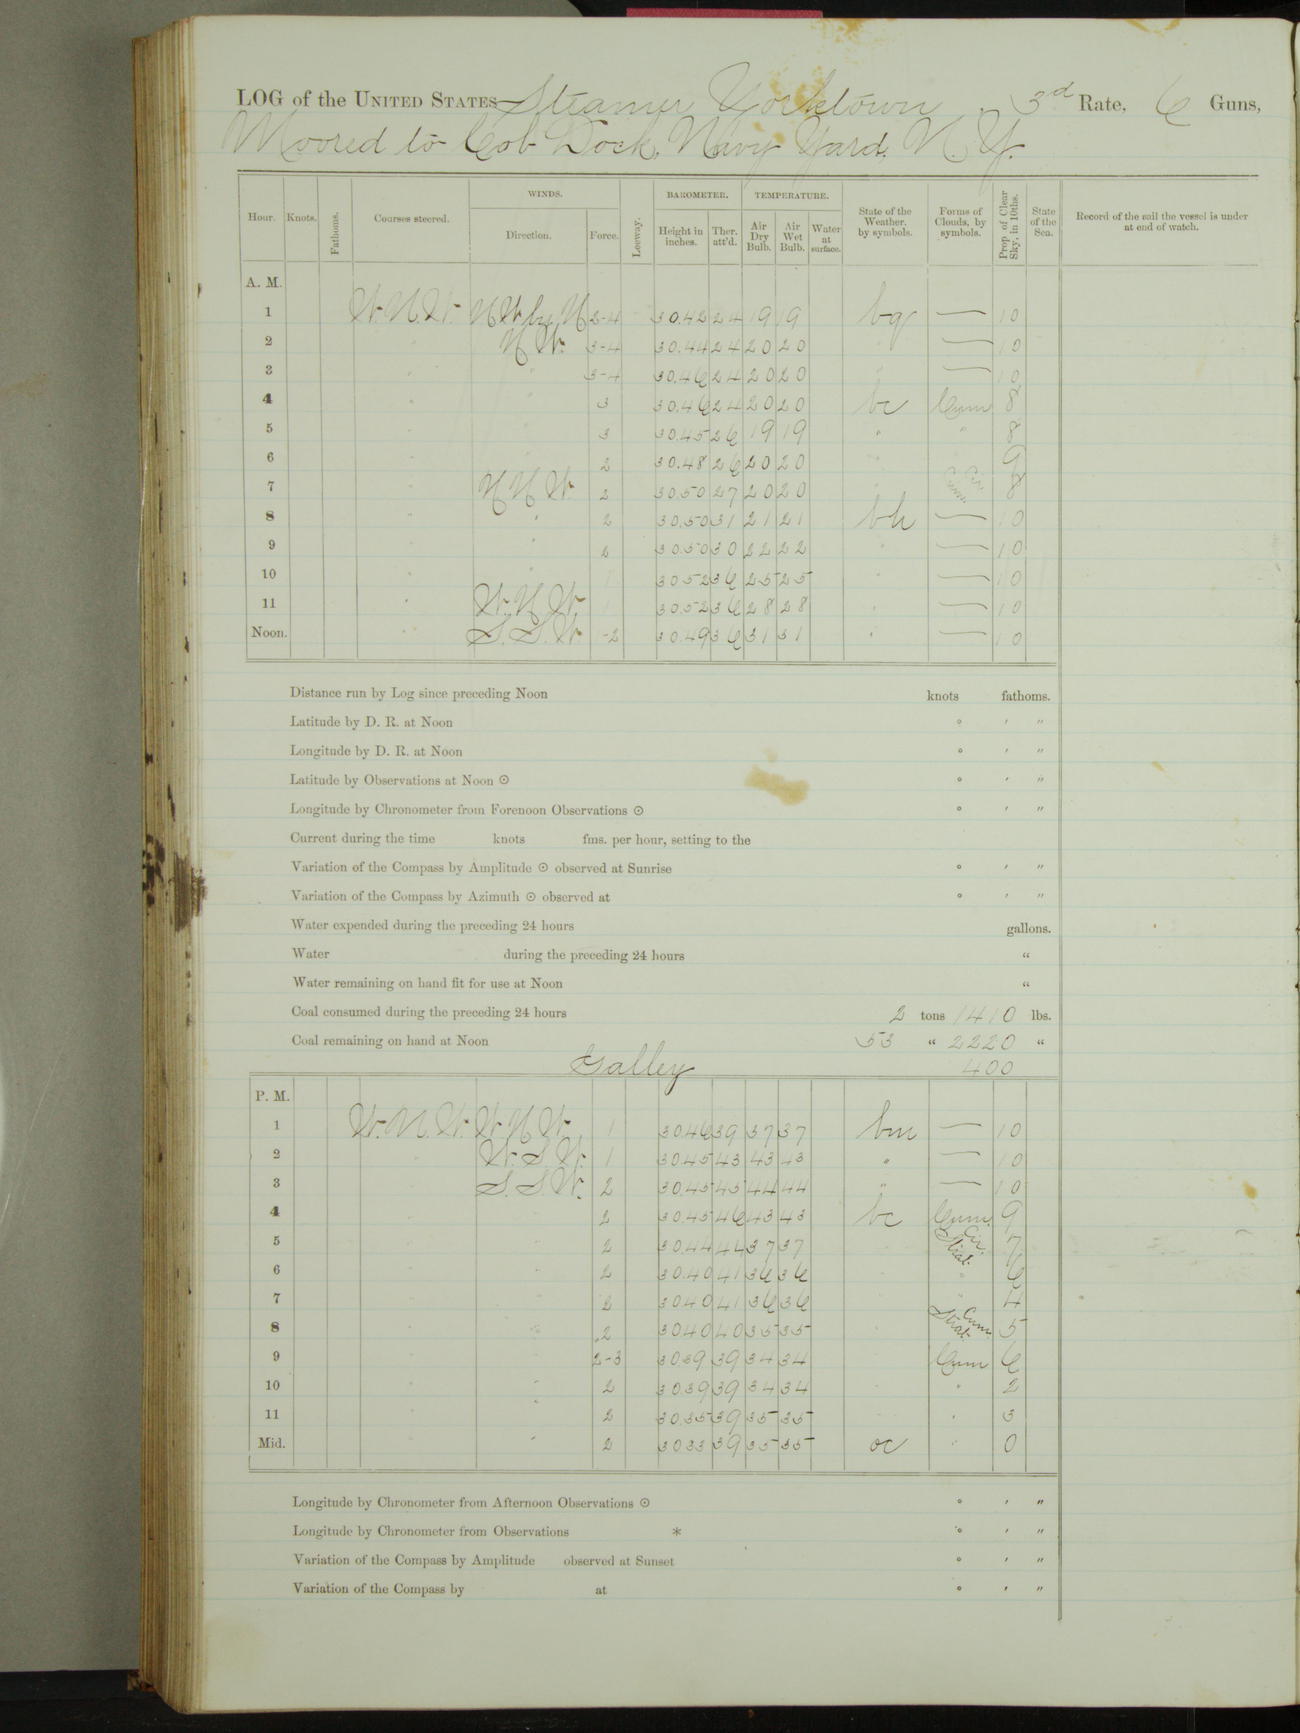 LOG of the UNITED STATES Steamer Yorktown, 3d Rate, 6 Guns,
Moored to Cob Dock, Navy Yard, N. Y.
Hour. Knots. Fathoms. Courses steered. WINDS. Direction. Force. Leeway. BAROMETER. Height in inches. Ther. att'd. TEMPERATURE. Air Dry Bulb. Air Wet Bulb. Water at surface. State of the Weather, by symbols. Forms of Clouds, by symbols. Prop. of Clear Sky, in 10ths. State of the Sea. Record of the sail the vessel is under at end of watch.
A. M.
1 W.N.W. NW by N 2-4 30.42 24 19 19 bq — 10
2 " N.W. 3-4 30.44 24 20 20 " — 10
3 " " 3-4 30.46 24 20 20 " — 10
4 " " 3 30.46 24 20 20 bc Cum 8
5 " " 3 30.45 26 19 19 " " 8
6 " " 2 30.48 26 20 20 " " 9
7 " N N W 2 30.50 27 20 20 " Cir Cum 8
8 " " 2 30.50 31 21 21 bh — 10
9 " " 2 30.50 30 22 22 " — 10
10 " " 1 30.52 36 25 25 " — 10
11 " W.N.W. 1 30.52 36 28 28 " — 10
Noon. " S.S.W. -2 30.49 36 31 31 " — 10
Distance run by Log since preceding Noon knots fathoms.
Latitude by D. R. at Noon ° ′ ″
Longitude by D. R. at Noon ° ′ ″
Latitude by Observations at Noon ⊙ ° ′ ″
Longitude by Chronometer from Forenoon Observations ⊙ ° ′ ″
Current during the time knots fms. per hour, setting to the
Variation of the Compass by Amplitude ⊙ observed at Sunrise ° ′ ″
Variation of the Compass by Azimuth ⊙ observed at ° ′ ″
Water expended during the preceding 24 hours gallons.
Water during the preceding 24 hours "
Water remaining on hand fit for use at Noon "
Coal consumed during the preceding 24 hours 2 tons 1410 lbs.
Coal remaining on hand at Noon 53 " 2220 "
Galley 400
P. M.
1 W.N.W. W N W 1 30.46 39 37 37 bm — 10
2 " W.S.W. 1 30.45 43 43 43 " — 10
3 " S.S.W. 2 30.45 45 44 44 " — 10
4 " " 2 30.45 46 43 43 bc Cum. 9
5 " " 2 30.44 44 37 37 " Cir. Strat. 7
6 " " 2 30.40 41 36 36 " " 6
7 " " 2 3040 41 36 36 " " 4
8 " " 2 3040 40 35 35 " Cum. Strat. 5
9 " " 2-3 3039 39 34 34 " Cum 6
10 " " 2 30.39 39 34 34 " " 2
11 " " 2 30.35 39 35 35 " " 3
Mid. " " 2 3033 39 35 35 oc " 0
Longitude by Chronometer from Afternoon Observations ⊙ ° ′ ″
Longitude by Chronometer from Observations * ° ′ ″
Variation of the Compass by Amplitude observed at Sunset ° ′ ″
Variation of the Compass by at ° ′ ″